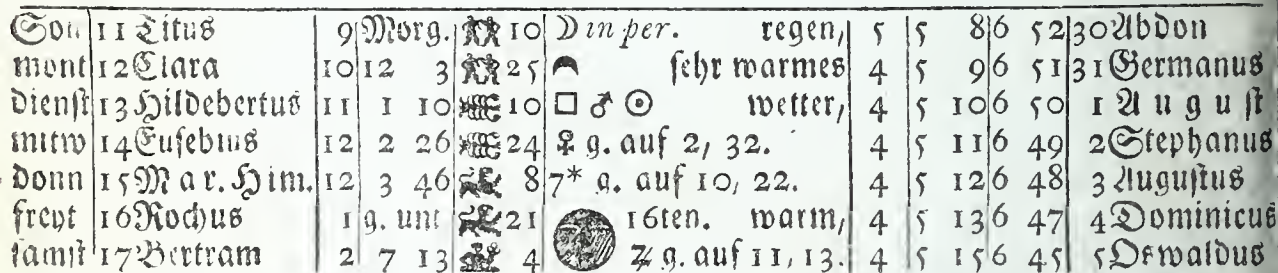 Son 11 Titus 9 Morg. 10 ☽ in per. regen, 5 5 8 6 52 30 Abdon
mont 12 Clara 10 12 3 25 sehr warmes 4 5 9 6 51 31 Germanus
dienst 13 Hildebertus 11 1 10 10 □ ♂ ☉ wetter, 4 5 10 6 50 1 August
mitw 14 Eusebius 12 2 26 24 ♀ g. auf 2, 32. 4 5 11 6 49 2 Stephanus
donn 15 Mar. Him. 12 3 46 8 7* g. auf 10, 22. 4 5 12 6 48 3 Augustus
freyt 16 Rochus 1 g. unt 21 16ten. warm, 4 5 13 6 47 4 Dominicus
samst 17 Bertram 2 7 13 4 ♃ g. auf 11, 13. 4 5 15 6 45 5 Oswaldus